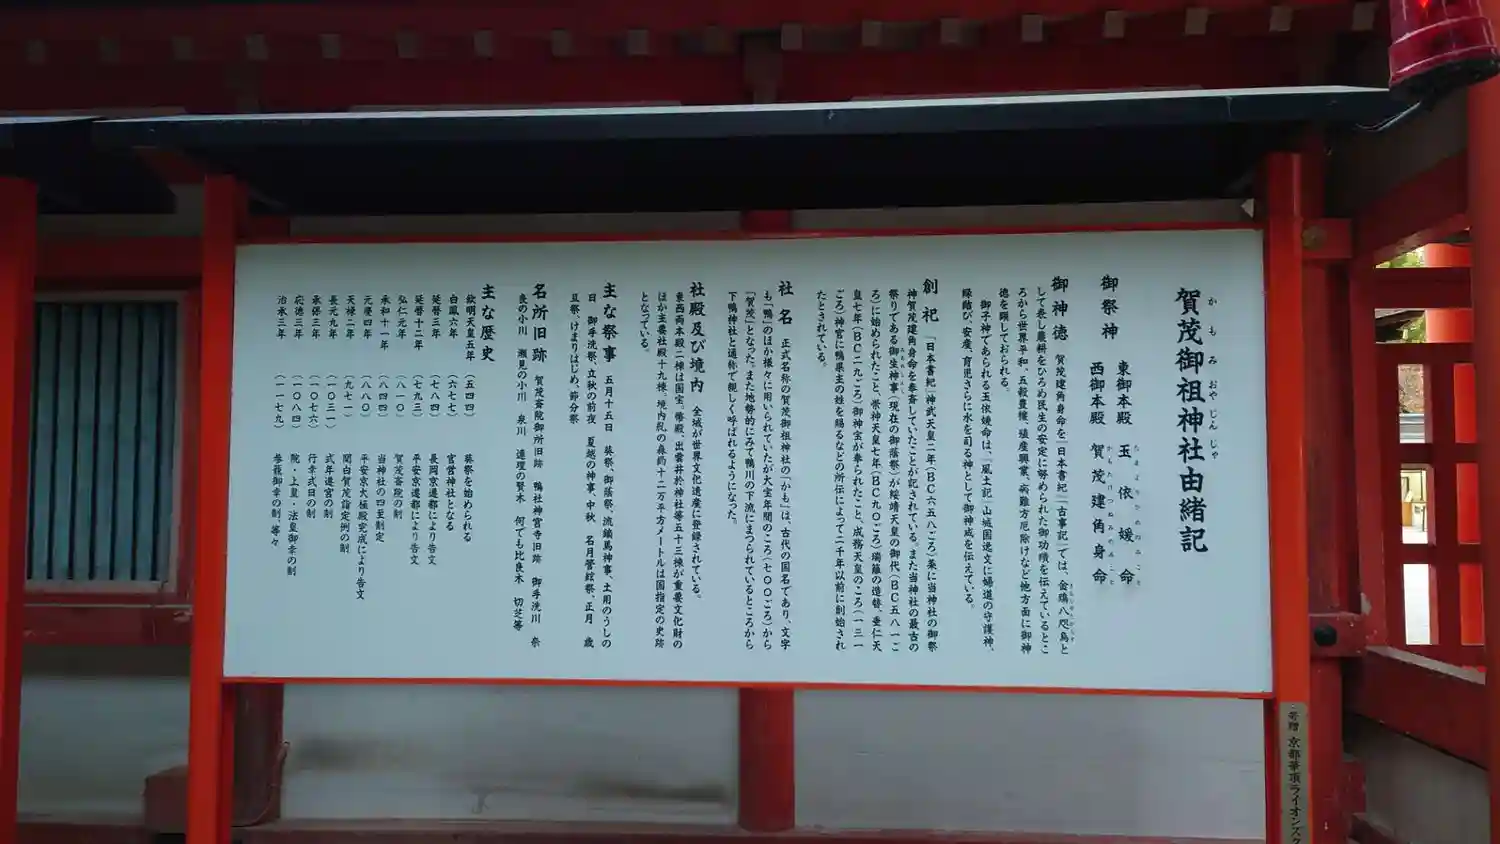 賀茂御祖神社由緒記
かもみおやじんじゃ
御祭神
東御本殿 玉依媛命
たまよりひめのみこと
西御本殿 賀茂建角身命
かもたけつぬみのみこと
御神徳 賀茂建角身命を『日本書紀』『古事記』では、金鵄八咫烏と
して表し農耕をひろめ民生の安定に努められた御功績を伝えているとこ
ろから世界平和、五穀豊穣、殖産興業、病難方厄除けなど他方面に御神
徳を顕しておられる。
御子神であられる玉依媛命は、『風土記』山城国逸文に婦道の守護神、
縁結び、安産、育児さらに水を司る神として御神威を伝えている。
創祀 『日本書紀』神武天皇二年(BC六五八ごろ)条に当神社の御祭
神賀茂建角身命を奉斎していたことが記されている。また当神社の最古の
祭りである御生神事(現在の御蔭祭)が綏靖天皇の御代(BC五八一ご
ろ)に始められたこと、崇神天皇七年(BC九〇ごろ)瑞籬の造替、垂仁天
皇七年(BC二九ごろ)御神宝が奉られたこと、成務天皇のころ(一三一
ごろ)神宮に鴨県主の姓を賜るなどの所伝によって二千年以前に創始され
たとされている。
社名 正式名称の賀茂御祖神社の「かも」は、古代の国名であり、文字
も「鴨」のほか様々に用いられていたが大宝年間のころ(七〇〇ごろ)から
「賀茂」となった。また地勢的にみて鴨川の下流にまつられているところから
下鴨神社と通称で親しく呼ばれるようになった。
社殿及び境内 全域が世界文化遺産に登録されている。
東西両本殿二棟は国宝。幣殿、出雲井於神社等五十三棟が重要文化財の
ほか主要社殿十九棟。境内糺の森約十二万平方メートルは国指定の史跡
となつている。
主な祭事 五月十五日 葵祭、御蔭祭、流鏑馬神事、土用のうしの
日 御手洗祭、立秋の前夜 夏越の神事、中秋 名月管絃祭、正月 歳
旦祭、けまりはじめ、節分祭
名所旧跡 賀茂斎院御所旧跡 鴨社神宮寺旧跡 御手洗川 奈
良の小川 瀬見の小川 泉川 連理の賢木 何でも比良木 切芝等
主な歴史
欽明天皇五年 (五四四) 葵祭を始められる
白鳳六年 (六七七) 官営神社となる
延暦三年 (七八四) 長岡京遷都により告文
延暦十二年 (七九三) 平安京遷都により告文
弘仁元年 (八一〇) 賀茂斎院の制
承和十一年 (八四四) 当神社の四至制定
元慶四年 (八八〇) 平安京大極殿完成により告文
天禄二年 (九七一) 関白賀茂詣定例の制
長元九年 (一〇三一) 式年遷宮の制
承保三年 (一〇七六) 行幸式日の制
応徳三年 (一〇八四) 院・上皇・法皇御幸の制
治承三年 (一一七九) 参籠御幸の制 等々
寄贈 京都華頂ライオンズク